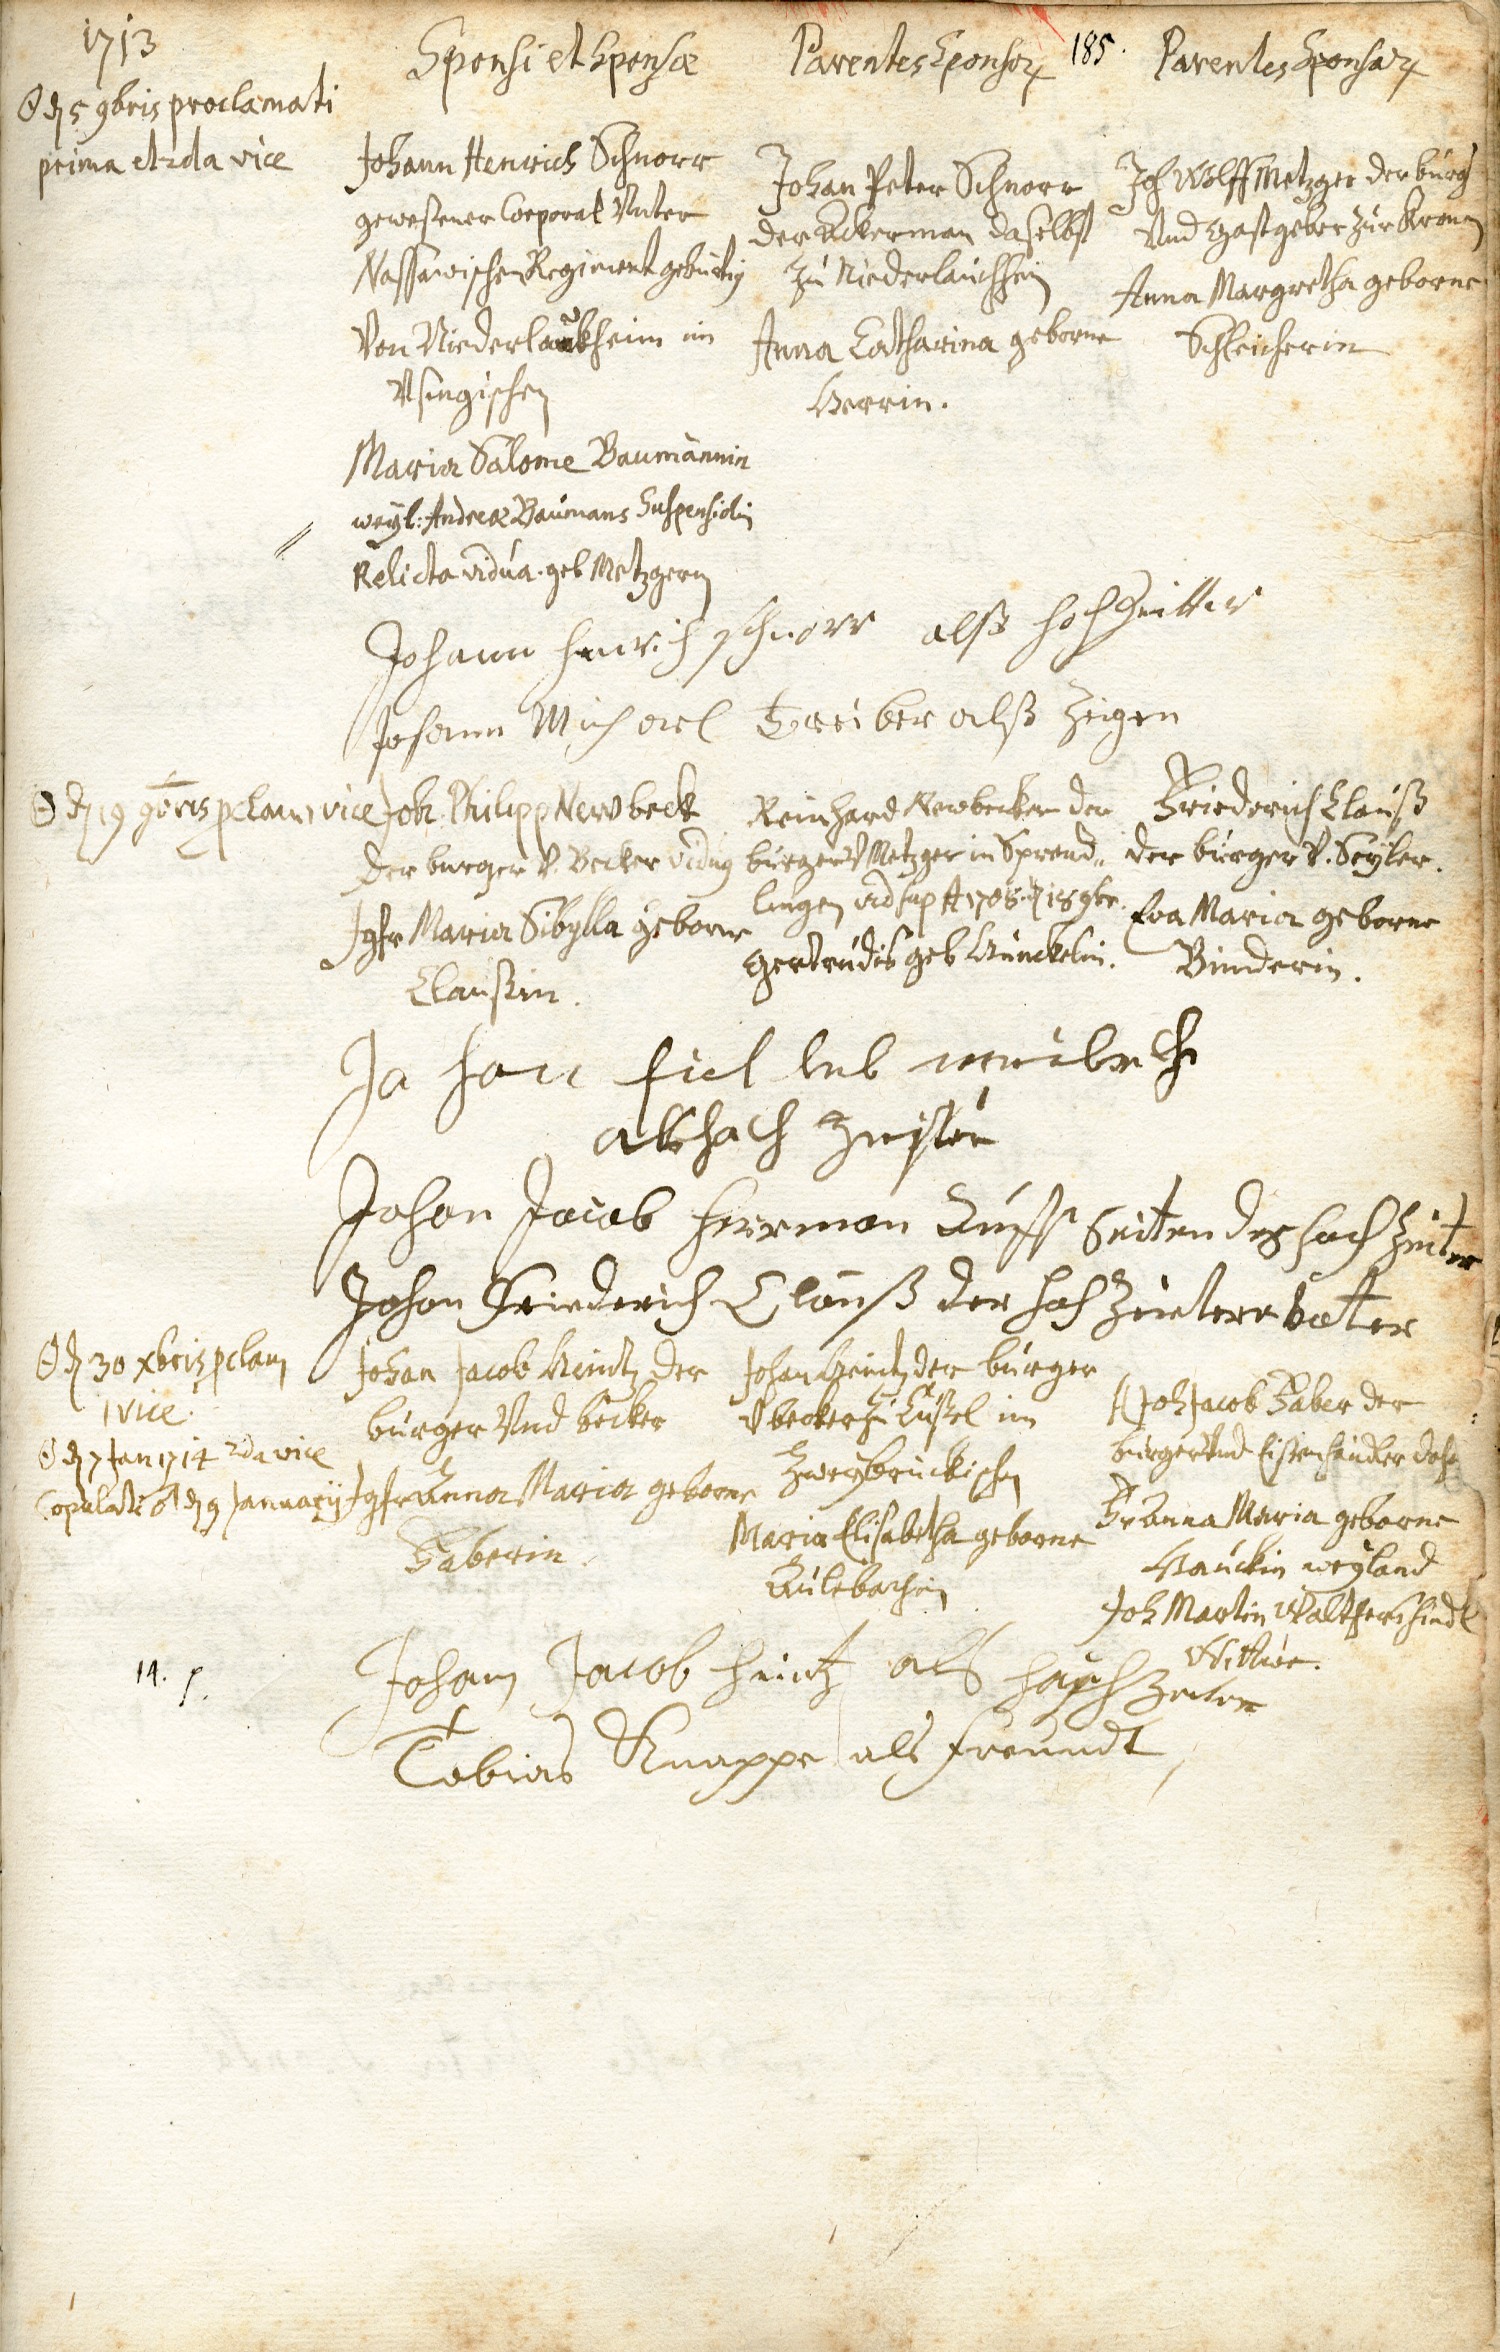 1713
Sponsi et Sponsæ
Parentes Sponsor
185.
Parentes Sponsar
☉ d 5 9bris proclamati
prima et 2da vice
Johann Henrich Schnorr
gewesener Corporal Unter
Nassawischen Regiment gebürtig
Von Niederlaukheim im
Usingischen
Maria Salome Baumännin
weyl: Andreæ Baumans
Relicta vidua geb Metzgern
Johan Peter Schnorr
der Ackerman daselbst
Zu Niederlauchhein
Anna Catharina geborne
Herrin.
Joh Wolff Metzger der burg
Und Gastgeber Zur Kronen
Anna Margretha geborne
Schleicherin
Johann Henrich Schnorr alß hochZeitter
Johann Michael Treiber alß Zeigen
☉ d 19 9bris pclam 1 vice
Joh. Philipp Newbeck
Der burger V. Becker vidug
Jgfr Maria Sibylla geborne
Claußin.
Reinhard Newbecker der
burger V Metzger in Sprend„
lingen vid sup A 1708 d 18 9br.
Gertrudis geb Künckelin.
Friederich Clauß
der burger V. Seyler.
Eva Maria geborne
Binderin.
Johan Jacob Herrman Auff Seiten des hochZeiter
Johan Friederich Clauß der hochZeiterr vatter
☉ d 30 xbris pclam
1 vice
☉ d 7 Jan 1714 2da vice
Copulati d 9 Januarij
Johan Jacob Heintz der
burger Und becker
Jgfr Anna Maria geborne
Faberin.
Johan Heintz der burger
V becker Zu Cußel im
Zweybruckischen
Maria Elisabetha geborne
Joh Jacob Faber der
burger Und Eissenhändler
Fr Anna Maria geborne
Hauckin weyland
Joh Martin
Wittwe.
14.
Johann Jacob Heintz als hochzeiter
Tobias Knappe als freundt